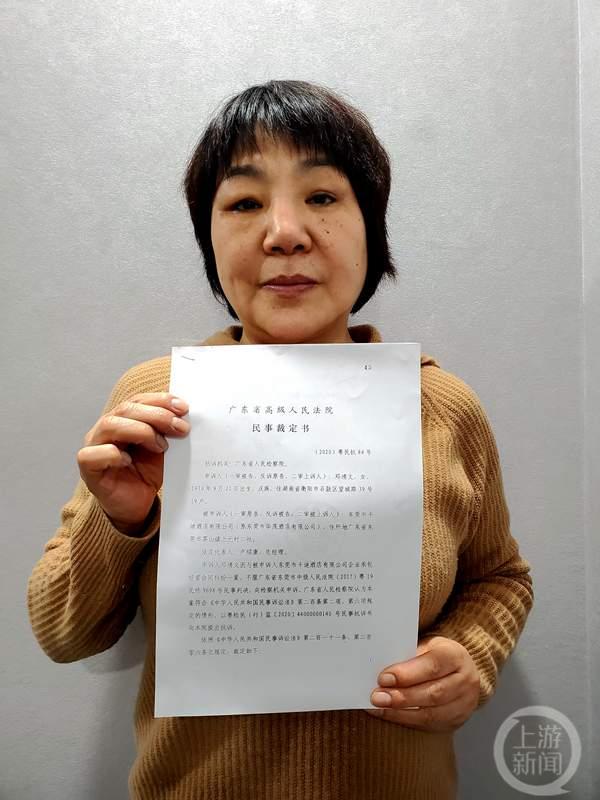 43
广东省高级人民法院
民事裁定书
(2020)粤民抗84号
抗诉机关：广东省人民检察院。
申诉人（一审被告、反诉原告、二审上诉人）：邓博文，女，
住湖南省衡阳市石鼓区望城路39号
被申诉人（一审原告、反诉被告、二审被上诉人）：东莞市千
谜酒店有限公司（原东莞市华茂酒店有限公司），住所地广东省东
莞市茶山镇上元村二社。
法定代表人：卢锦康，总经理。
申诉人邓博文因与被申诉人东莞市千谜酒店有限公司企业承包
经营合同纠纷一案，不服广东省东莞市中级人民法院（2017）粤19
民终 号民事判决，向检察机关申诉。广东省人民检察院认为本
案符合《中华人民共和国民事诉讼法》第二百条第二项、第六项规
定的情形，以粤检民（行）监[2020]44000000140号民事抗诉书
向本院提出抗诉。
依照《中华人民共和国民事诉讼法》第二百一十一条、第二百
零六条之规定，裁定如下：
1
上游
新闻